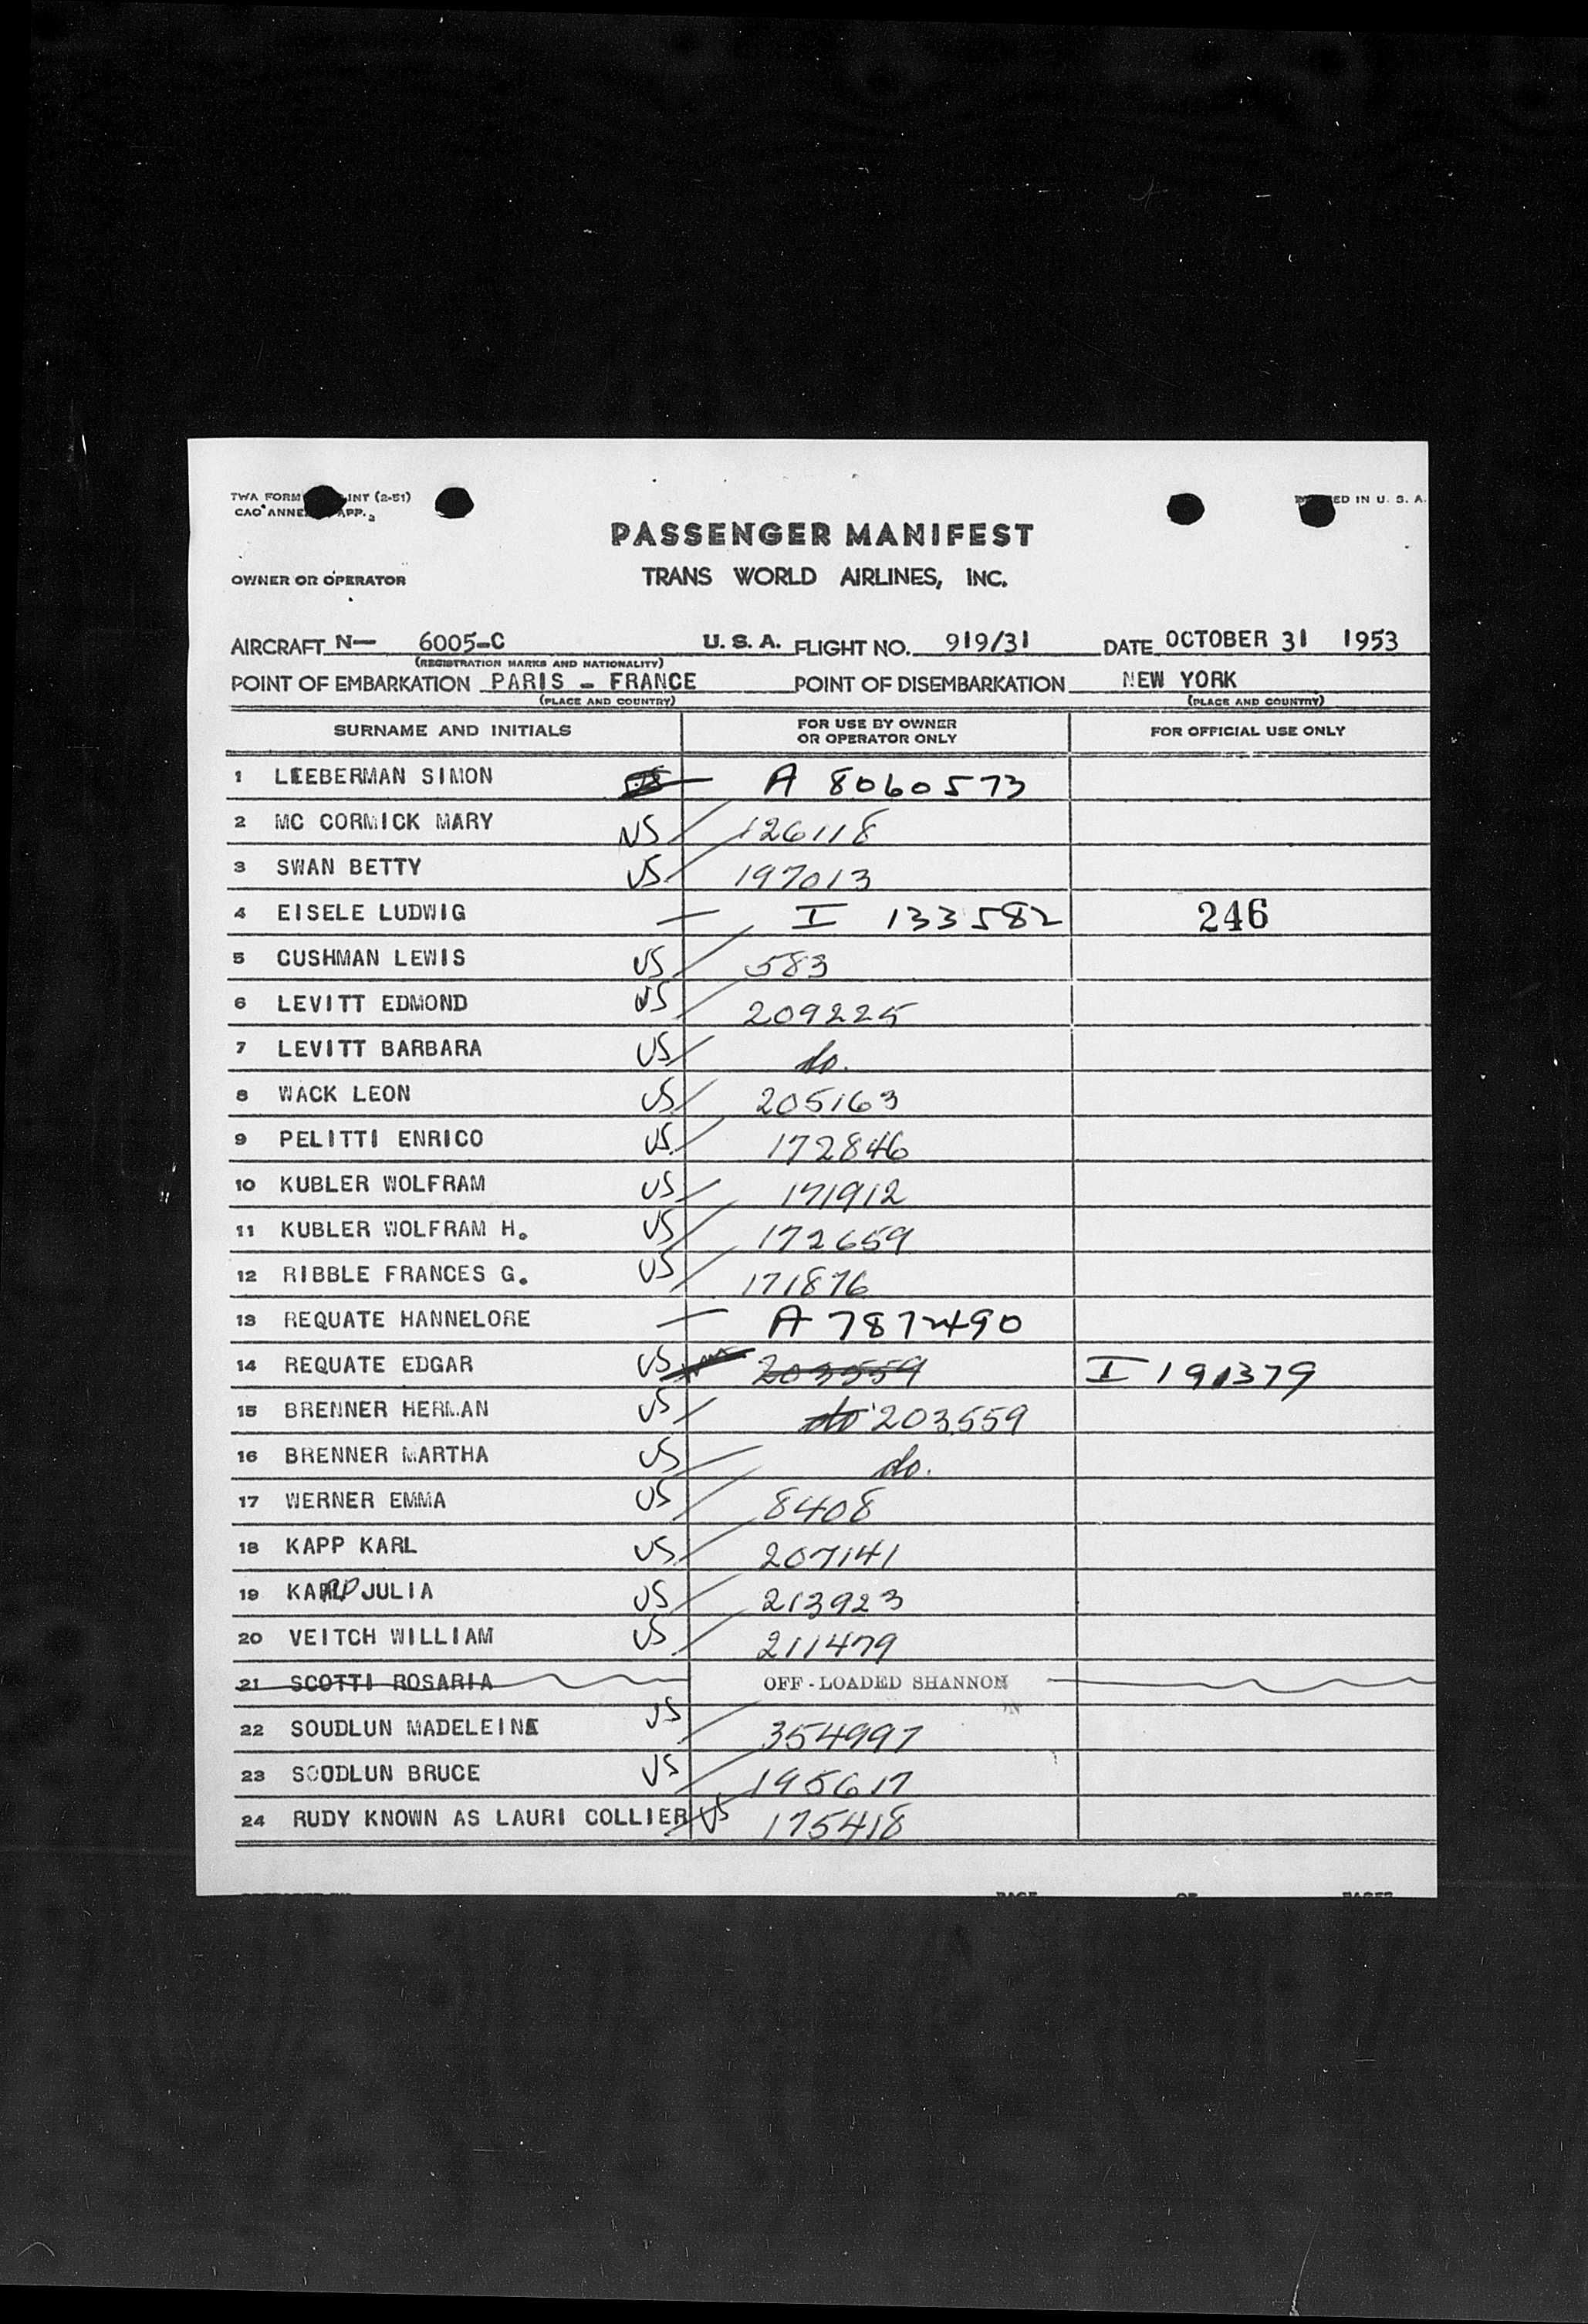 TWA FORM INT (2-51) PRINTED IN U. S. A.
CAO ANNE APP. 2
PASSENGER MANIFEST
OWNER OR OPERATOR TRANS WORLD AIRLINES, INC.
AIRCRAFT N— 6005-C U. S. A. FLIGHT NO. 919/31 DATE OCTOBER 31 1953
(REGISTRATION MARKS AND NATIONALITY)
POINT OF EMBARKATION PARIS - FRANCE POINT OF DISEMBARKATION NEW YORK
(PLACE AND COUNTRY) (PLACE AND COUNTRY)
SURNAME AND INITIALS FOR USE BY OWNER OR OPERATOR ONLY FOR OFFICIAL USE ONLY
1 LEEBERMAN SIMON A 8060573
2 MC CORMICK MARY US 126118
3 SWAN BETTY US 197013
4 EISELE LUDWIG — I 133582 246
5 CUSHMAN LEWIS US 583
6 LEVITT EDMOND US 209225
7 LEVITT BARBARA US do.
8 WACK LEON US 205163
9 PELITTI ENRICO US 172846
10 KUBLER WOLFRAM US 171912
11 KUBLER WOLFRAM H. US 172659
12 RIBBLE FRANCES G. US 171876
13 REQUATE HANNELORE — A 7872490
14 REQUATE EDGAR US 203559 I 191379
15 BRENNER HERMAN US do 203559
16 BRENNER MARTHA US do.
17 WERNER EMMA US 8408
18 KAPP KARL US 207141
19 KAPP JULIA US 213923
20 VEITCH WILLIAM US 211479
21 SCOTTI ROSARIA OFF - LOADED SHANNON
22 SOUDLUN MADELEINE US 354997
23 SOUDLUN BRUCE US 195617
24 RUDY KNOWN AS LAURI COLLIER US 175418